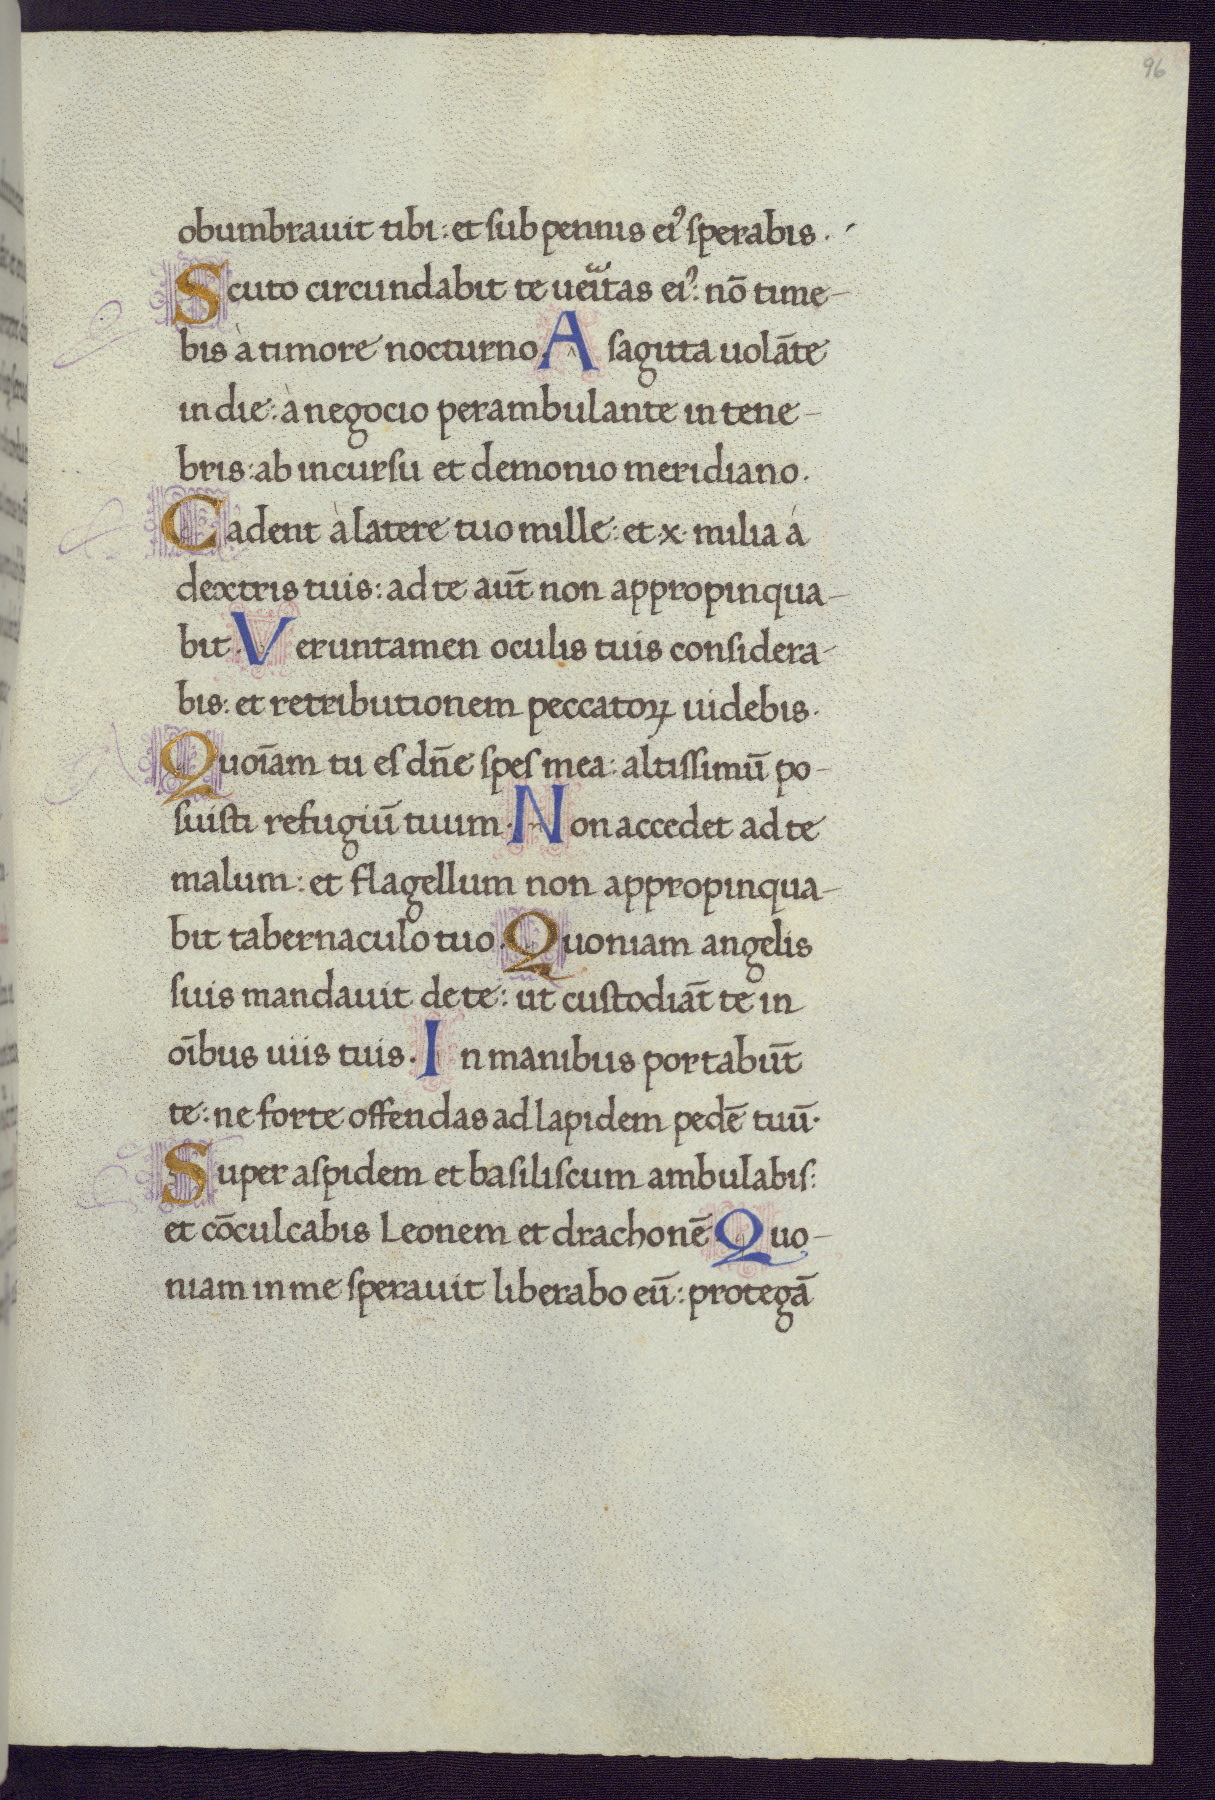 96
obumbrauit tibi: et sub pennis eiꝰ sperabis.
Scuto circundabit te ueĩtas eiꝰ: nō time-
bis à timore nocturno. A sagitta uolāte
in die: à negocio perambulante in tene-
bris: ab incursu et demonio meridiano.
Cadent à latere tuo mille: et .x. milia à
dextris tuis: ad te aut̄ non appropinqua-
bit. Veruntamen oculis tuis considera-
bis: et retributionem peccatoꝝ uidebis.
Quoīam tu es dn̄e spes mea: altissimū po-
suisti refugiū tuum. Non accedet ad te
malum: et flagellum non appropinqua-
bit tabernaculo tuo. Quoniam angelis
suis mandauit de te: ut custodiāt te in
oībus uiis tuis. In manibus portabūt
te: ne forte offendas ad lapidem pedē tuū.
Super aspidem et basiliscum ambulabis:
et cōculcabis Leonem et drachonē Quo-
niam in me sperauit liberabo eū: protegā